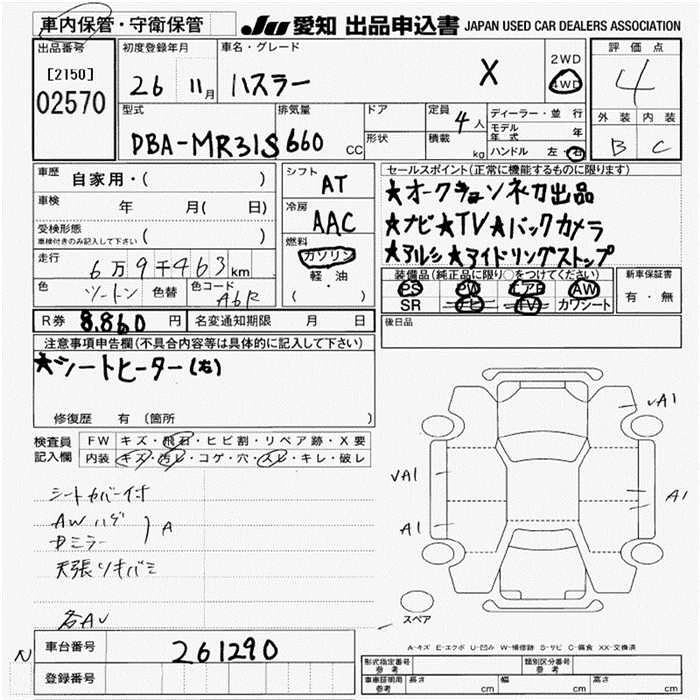 車内保管・守衛保管
JU 愛知 出品申込書 JAPAN USED CAR DEALERS ASSOCIATION
出品番号
[2150]
02570
初度登録年月
26 11月
車名・グレード
ハスラー X
2WD
4WD
評価点
4
外装 内装
B C
型式
DBA-MR31S
排気量
660 CC
ドア
形状
定員
4人
積載
kg
ディーラー・並行
モデル年式 年
ハンドル 左・右
車歴 自家用・( )
車検 年 月( 日)
受検形態
車検付きのみ記入して下さい ( )
走行 6万9千463km
色 ツートン 色替 色コード A6R
シフト
AT
冷房
AAC
燃料
ガソリン
軽・油
( )
セールスポイント(正常に機能するものに限ります)
★オークション初出品
★ナビ★TV★バックカメラ
★アルミ★アイドリングストップ
装備品(純正品に限り○をつけてください)
PS PW エアB AW
SR ナビ TV カワシート
新車保証書
有・無
R券 8.860円 名変通知期限 月 日
後日品
注意事項申告欄(不具合内容等は具体的に記入して下さい)
★シートヒーター(右)
修復歴 有 (箇所
検査員記入欄
FW キズ・飛石・ヒビ割・リペア跡・X要
内装 キズ・汚レ・コゲ・穴・スレ・キレ・破レ
シートカバー付
AWハゲ
ミラー
A
天張り
各AU
N
車台番号 261290
登録番号
UA1
UA1
A1
A1
スペア
A-キズ E-エクボ U-凹み W-補修跡 S-サビ C-腐食 XX-交換済
形式指定番号 参考
類別区分番号 参考
車庫証明用 参考 長さ cm 幅 cm 高さ cm